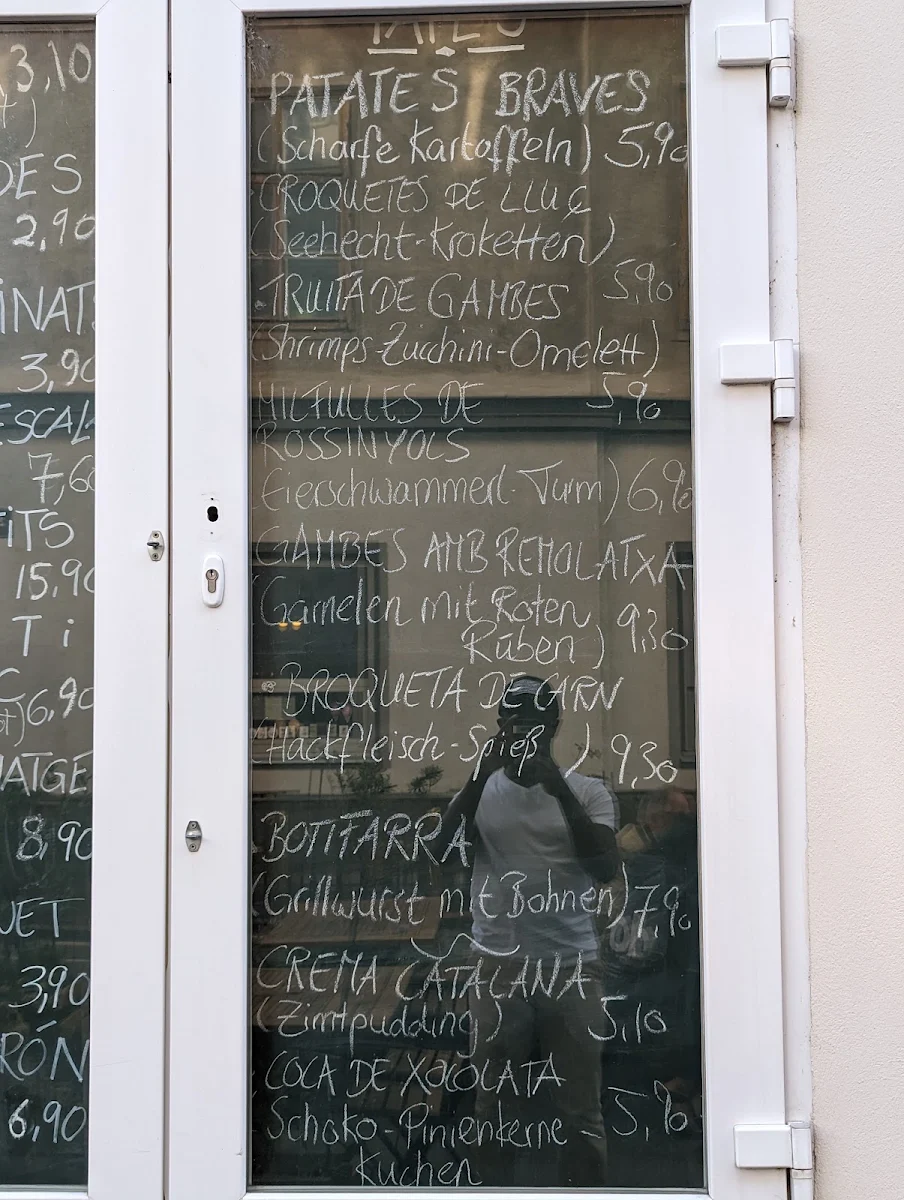 3,10
DES
2,90
INATS
3,90
ESCAL
7,60
ITS
15,90
T i
6,90
ATGE
8,90
UET
3,90
RÓN
6,90
PATATES BRAVES
(Scharfe Kartoffeln) 5,90
CROQUETES DE LLUÇ
(Seehecht-Kroketten)
5,90
TRUITA DE GAMBES
(Shrimps-Zucchini-Omelett)
5,90
MILFULLES DE
ROSSINYOLS
(Eierschwammerl-Turm) 6,90
GAMBES AMB REMOLATXA
(Garnelen mit Roten
Rüben) 9,30
BROQUETA DE CARN
(Hackfleisch-Spieß) 9,30
BOTIFARRA
(Grillwurst mit Bohnen) 7,90
CREMA CATALANA
(Zimtpudding) 5,10
COCA DE XOCOLATA
(Schoko-Pinienkerne- 5,90
Kuchen